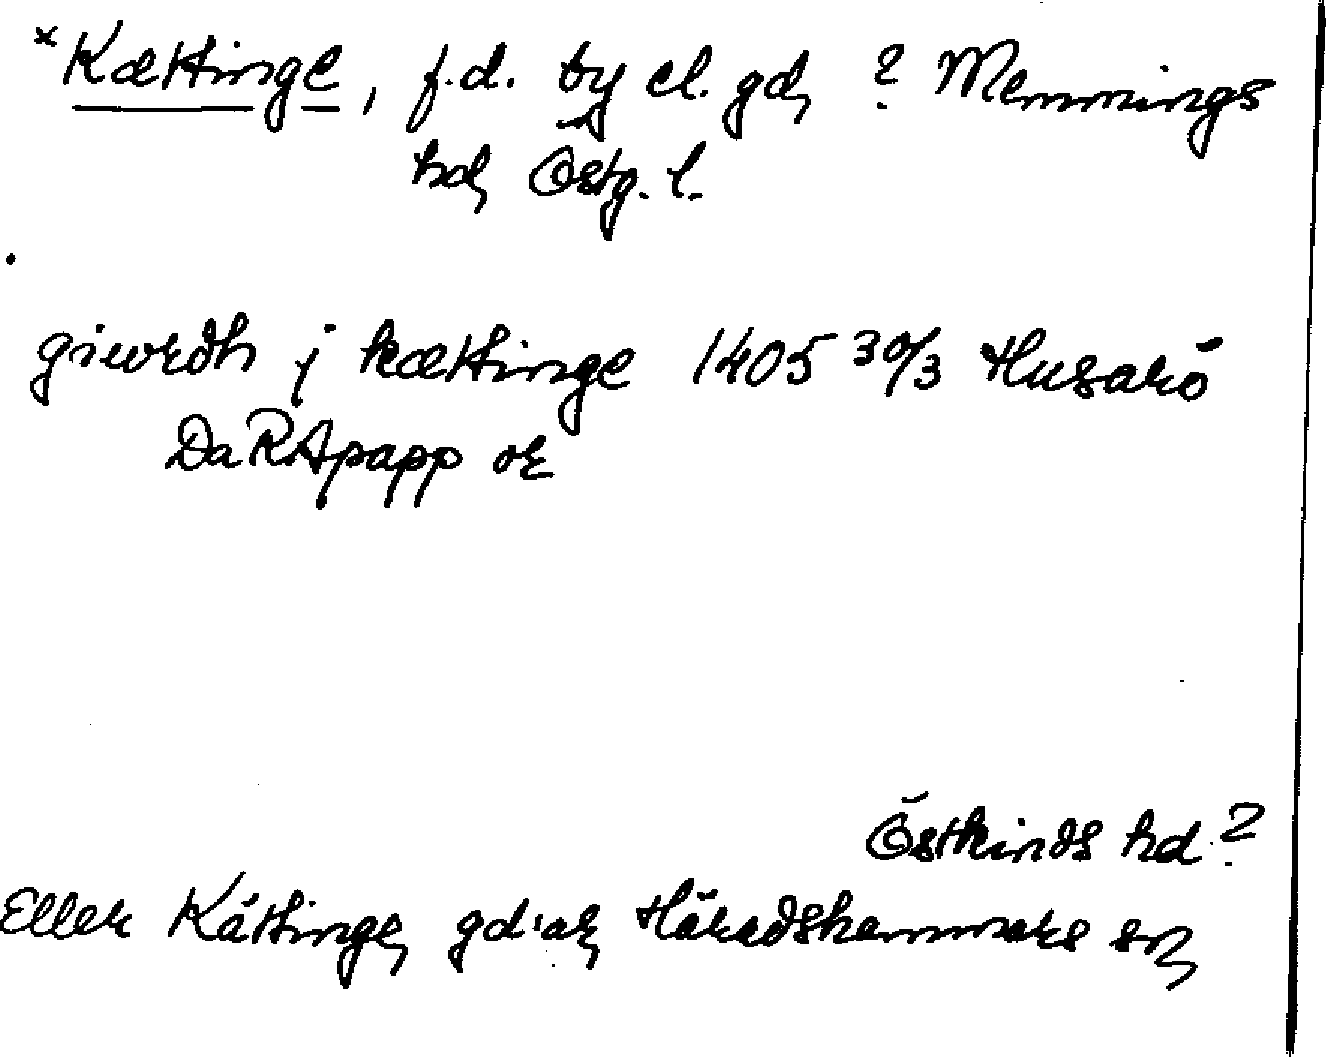 *Kættinge, f.d. by el. gd, ? Memmings
hd, Östg. l.
giwrdh j kættinge 1405 30/3 Husarö
Da RApapp or
Östkinds hd.?
Eller Kättinge, gd'ar, Häradshammars sn,